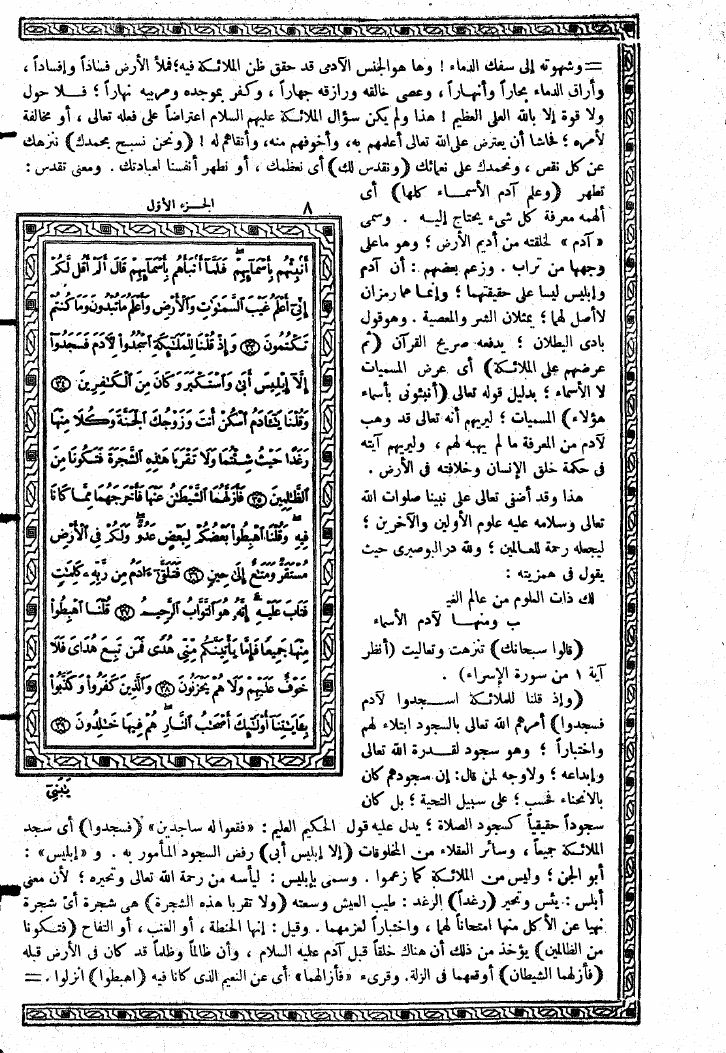 = وشهوته إلى سفك الدماء ! وها هو الجنس الآدمى قد حقق ظن الملائكة فيه؛ فملأ الأرض فساداً وإفساداً ،
وأراق الدماء بحاراً وأنهاراً ، وعصى خالقه ورازقه جهاراً ، وكفر بموجده ومربيه نهاراً ؛ فلا حول
ولا قوة إلا بالله العلى العظيم ! هذا ولم يكن سؤال الملائكة عليهم السلام اعتراضاً على فعله تعالى ، أو مخالفة
لأمره ؛ فحاشا أن يعترض على الله تعالى أعلمهم به، وأخوفهم منه، وأتقاهم له ! (ونحن نسبح بحمدك) ننزهك
عن كل نقص ، ونحمدك على نعمائك (ونقدس لك) أى نعظمك ، أو نطهر أنفسنا لعبادتك . ومعنى تقدس :
تطهر (وعلم آدم الأسماء كلها) أى
ألهمه معرفة كل شىء يحتاج إليه . وسمى
« آدم » لخلقته من أديم الأرض ؛ وهو ما على
وجهها من تراب . وزعم بعضهم : أن آدم
وإبليس ليسا على حقيقتهما ؛ وإنما هما رمزان
لا أصل لهما ؛ يمثلان الشر والمعصية . وهو قول
بادى البطلان ؛ يدفعه صريح القرآن (ثم
عرضهم على الملائكة) أى عرض المسميات
لا الأسماء ؛ بدليل قوله تعالى (أنبئونى بأسماء
هؤلاء) المسميات ؛ ليريهم أنه تعالى قد وهب
لآدم من المعرفة ما لم يهبه لهم ، وليريهم آيته
فى حكمة خلق الإنسان وخلافته فى الأرض .
هذا وقد أضفى تعالى على نبينا صلوات الله
تعالى وسلامه عليه علوم الأولين والآخرين ؛
ليجعله رحمة للعالمين ؛ ولله در البوصيرى حيث
يقول فى همزيته :
لك ذات العلوم من عالم الغيـ
ـب ومنها لآدم الأسماء
(قالوا سبحانك) تنزهت وتعاليت (أنظر
آية ١ من سورة الإسراء) .
(وإذ قلنا للملائكة اسجدوا لآدم
فسجدوا) أمرهم الله تعالى بالسجود ابتلاء لهم
واختباراً ؛ وهو سجود لقدرة الله تعالى
وإبداعه ؛ ولا وجه لمن قال : إن سجودهم كان
بالانحناء فحسب ؛ على سبيل التحية ؛ بل كان
٨ الجزء الأول
أَنۢبِئْهُم بِأَسْمَآئِهِمْ ۖ فَلَمَّآ أَنۢبَأَهُم بِأَسْمَآئِهِمْ قَالَ أَلَمْ أَقُل لَّكُمْ
إِنِّىٓ أَعْلَمُ غَيْبَ ٱلسَّمَٰوَٰتِ وَٱلْأَرْضِ وَأَعْلَمُ مَا تُبْدُونَ وَمَا كُنتُمْ
تَكْتُمُونَ ﴿٣٣﴾ وَإِذْ قُلْنَا لِلْمَلَٰٓئِكَةِ ٱسْجُدُوا۟ لِـَٔادَمَ فَسَجَدُوٓا۟
إِلَّآ إِبْلِيسَ أَبَىٰ وَٱسْتَكْبَرَ وَكَانَ مِنَ ٱلْكَٰفِرِينَ ﴿٣٤﴾
وَقُلْنَا يَٰٓـَٔادَمُ ٱسْكُنْ أَنتَ وَزَوْجُكَ ٱلْجَنَّةَ وَكُلَا مِنْهَا
رَغَدًا حَيْثُ شِئْتُمَا وَلَا تَقْرَبَا هَٰذِهِ ٱلشَّجَرَةَ فَتَكُونَا مِنَ
ٱلظَّٰلِمِينَ ﴿٣٥﴾ فَأَزَلَّهُمَا ٱلشَّيْطَٰنُ عَنْهَا فَأَخْرَجَهُمَا مِمَّا كَانَا
فِيهِ ۖ وَقُلْنَا ٱهْبِطُوا۟ بَعْضُكُمْ لِبَعْضٍ عَدُوٌّ ۖ وَلَكُمْ فِى ٱلْأَرْضِ
مُسْتَقَرٌّ وَمَتَٰعٌ إِلَىٰ حِينٍ ﴿٣٦﴾ فَتَلَقَّىٰٓ ءَادَمُ مِن رَّبِّهِۦ كَلِمَٰتٍ
فَتَابَ عَلَيْهِ ۚ إِنَّهُۥ هُوَ ٱلتَّوَّابُ ٱلرَّحِيمُ ﴿٣٧﴾ قُلْنَا ٱهْبِطُوا۟
مِنْهَا جَمِيعًا فَإِمَّا يَأْتِيَنَّكُم مِّنِّى هُدًى فَمَن تَبِعَ هُدَاىَ فَلَا
خَوْفٌ عَلَيْهِمْ وَلَا هُمْ يَحْزَنُونَ ﴿٣٨﴾ وَٱلَّذِينَ كَفَرُوا۟ وَكَذَّبُوا۟
بِـَٔايَٰتِنَآ أُو۟لَٰٓئِكَ أَصْحَٰبُ ٱلنَّارِ ۖ هُمْ فِيهَا خَٰلِدُونَ ﴿٣٩﴾
يَٰبَنِىٓ
سجوداً حقيقياً كسجود الصلاة ؛ يدل عليه قول الحكيم العليم : « فقعوا له ساجدين » (فسجدوا) أى سجد
الملائكة جميعاً ، وسائر العقلاء من المخلوقات (إلا إبليس أبى) رفض السجود المأمور به . و « إبليس » :
أبو الجن ؛ وليس من الملائكة كما زعموا . وسمى بإبليس : ليأسه من رحمة الله تعالى وتحيره ؛ لأن معنى
أبلس : يئس وتحير (رغداً) الرغد : طيب العيش وسعته (ولا تقربا هذه الشجرة) هى شجرة أى شجرة
نهيا عن الأكل منها امتحاناً لهما ، واختباراً لعزمهما . وقيل : إنها الحنطة ، أو العنب ، أو التفاح (فتكونا
من الظالمين) يؤخذ من ذلك أن هناك خلقاً قبل آدم عليه السلام ، وأن ظالماً وظلماً قد كان فى الأرض قبله
(فأزلهما الشيطان) أوقعهما فى الزلة. وقرىء « فأزالهما » أى عن النعيم الذى كانا فيه (اهبطوا) انزلوا . =